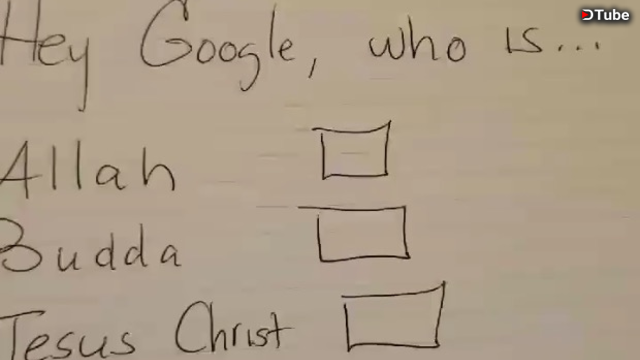 DTube
Hey Google, who is...
Allah
Budda
Jesus Christ